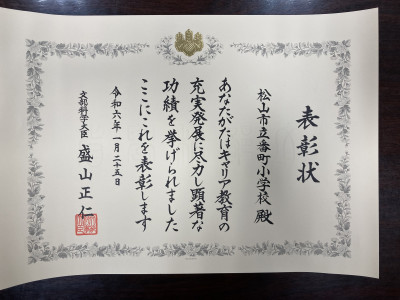 表彰状
松山市立番町小学校 殿
あなたがたはキャリア教育の
充実発展に尽力し顕著な
功績を挙げられました
ここにこれを表彰します
令和六年一月二十五日
文部科学大臣 盛山正仁